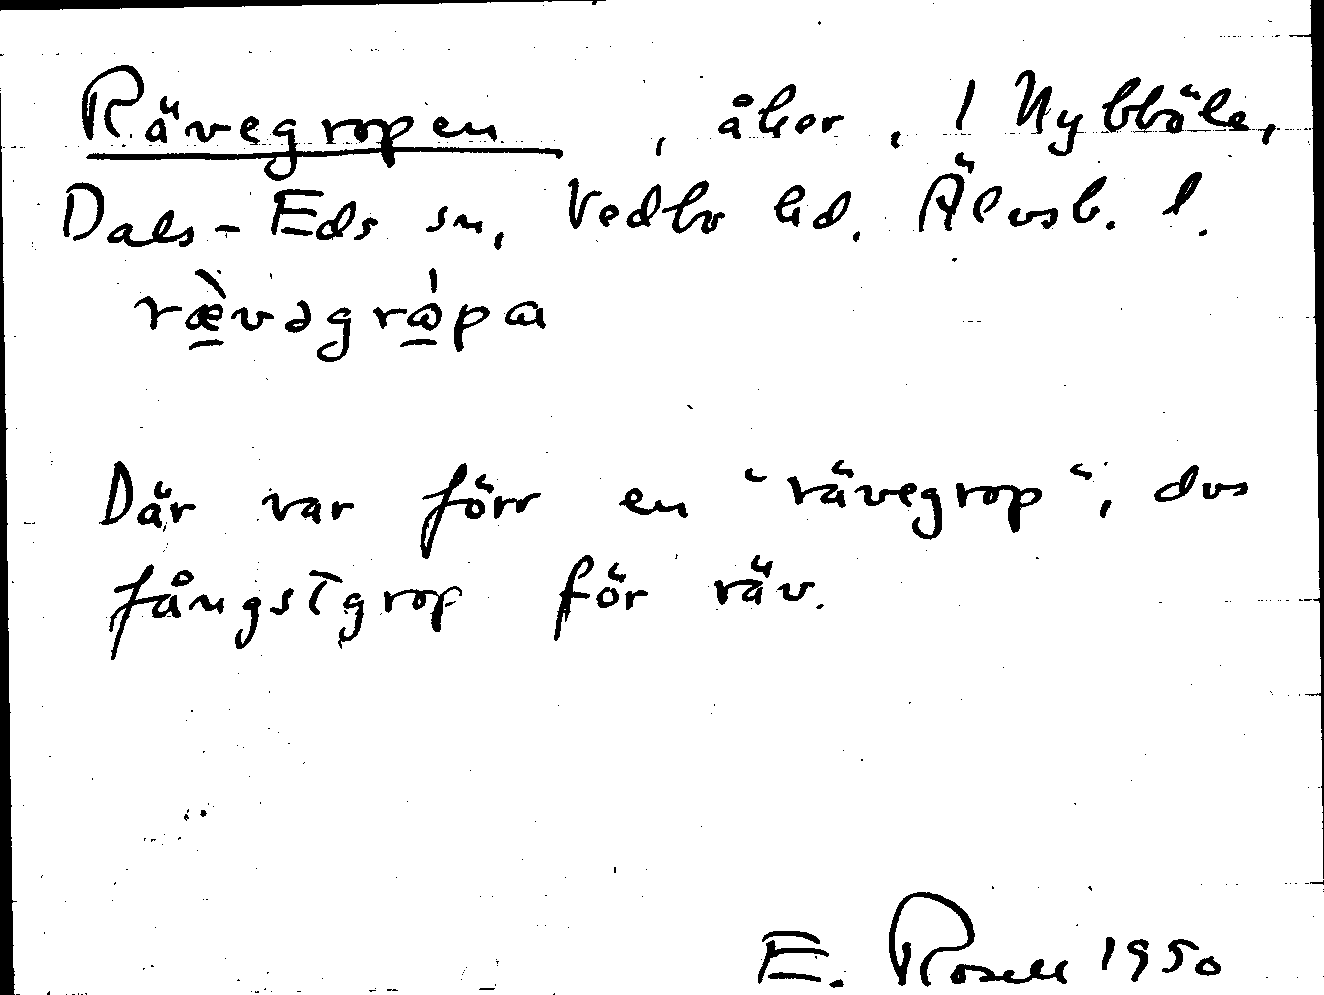 Rävegropen, åker, 1 Nybböle,
Dals-Eds sn, Vedbo hd. Älvsb. l.
ræ̀vəgrɷ́pa
Där var förr en "rävegrop", dvs
fångstgrop för räv.
E. Rosell 1950